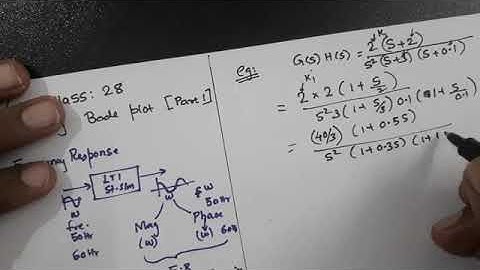 class: 28
Bode plot [Part 1]
Frequency Response
LTI
System
w
fre.
50Hz
60Hz
Mag
(w)
Phase
(w)
f w
50Hz
60Hz
eg:
G(s) H(s) = 2 K (s+2) / s² (s+3) (s+0.1)
= 2 K1 × 2 (1 + s/2) / s² 3 (1 + s/3) 0.1 (1 + s/0.1)
= (40/3) (1 + 0.5s) / s² (1 + 0.3s) (1+1